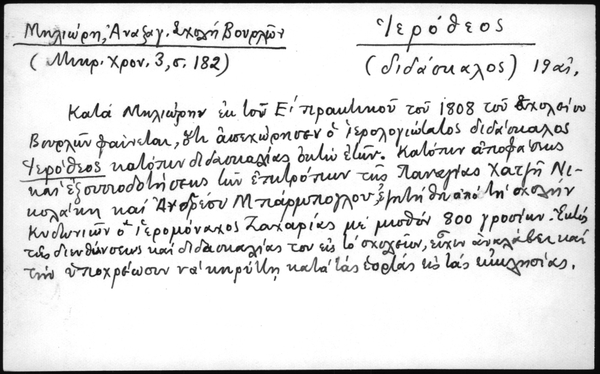 Μηλιώρη, Ἀναξαγ. Σχολή Βουρλῶν
(Μικρ. Χρον. 3, σ. 182)
Ἱερόθεος
(διδάσκαλος) 19 αἰ.
Κατά Μηλιώρην ἐκ τοῦ Ε΄ πρακτικοῦ τοῦ 1808 τοῦ Σχολείου
Βουρλῶν φαίνεται, ὅτι ἀπεχώρησεν ὁ Ἱερολογιώτατος διδάσκαλος
Ἱερόθεος κατόπιν διδασκαλίας ὀκτώ ἐτῶν. Κατόπιν ἀποφάσεως
καί ἐξουσιοδοτήσεως τῶν ἐπιτρόπων τῆς Παναγίας Χατζῆ Νι-
κολάκη καί Ἀνδρέου Μπάρμπογλου ἐζητήθη ἀπό τή σχολήν
Κυδωνιῶν ὁ Ἱερομόναχος Ζαχαρίας μέ μισθόν 800 γροσίων. Ἐκτός
τῆς διευθύνσεως καί διδασκαλίας του εἰς τό σχολεῖον, εἶχεν ἀναλάβει καί
τήν ὑποχρέωσιν νά κηρύττῃ κατά τάς ἑορτάς εἰς τάς ἐκκλησίας.